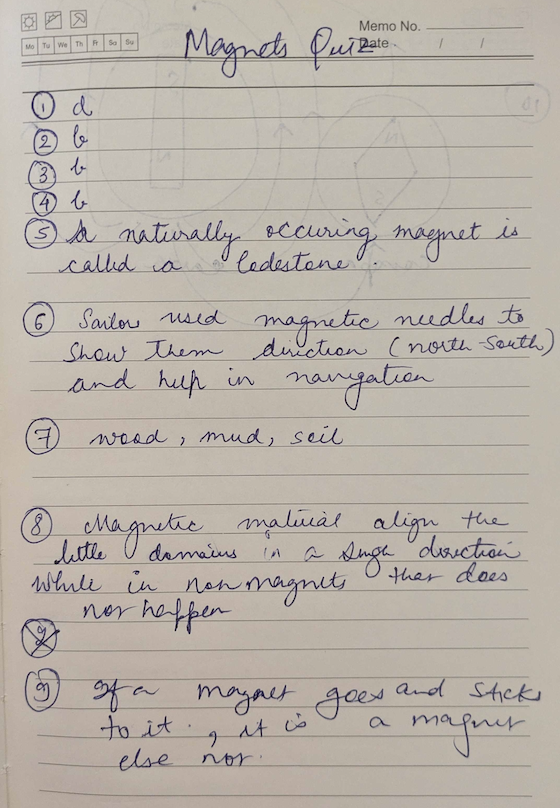 Memo No.
Mo Tu We Th Fr Sa Su
Date / /
Magnets Quiz
1 d
2 b
3 b
4 b
5 A naturally occuring magnet is
called a lodestone.
6 Sailors used magnetic needles to
show them direction (north-south)
and help in navigation
7 wood, mud, soil
8 Magnetic material align the
little domains in a single direction
while in non magnets that does
not happen
9
9 If a magnet goes and sticks
to it, it is a magnet
else not.